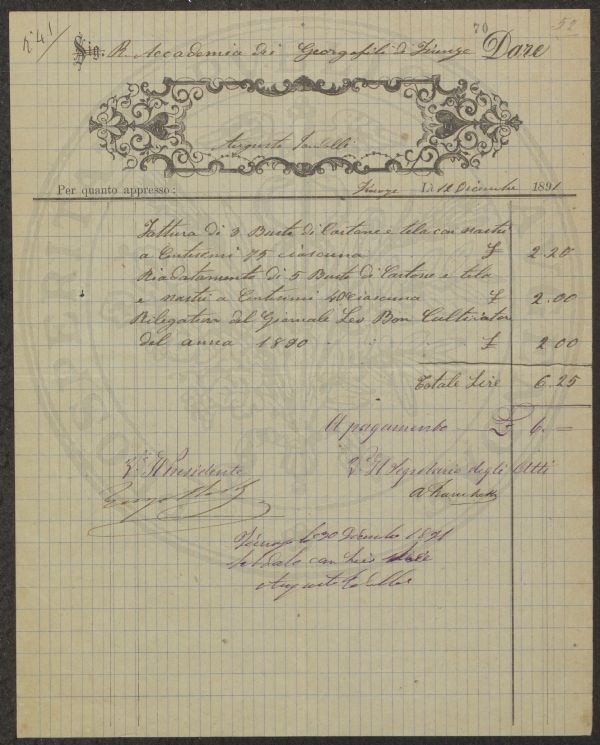 n° 41
70
52
Sig. R. Accademia dei Georgofili di Firenze Dare
Augusto
Per quanto appresso: Firenze Lì 12 Dicembre 1891
Fattura di 3 Buste di Cartone e tela con nastri
a Centesimi 75 ciascuna £ 2.20
Riadatamento di 5 Buste di Cartone e tela
e nastri a Centesimi 40 ciascuna £ 2.00
Rilegatura del Giornale Les Bon Cultivator
del anna 1890 £ 2.00
Totale Lire 6.25
Al pagamento £ 6.=
Il Presidente
Il Segretario degli Atti
Firenze 20 Dicembre 1891
Saldato con Lire
Augusto